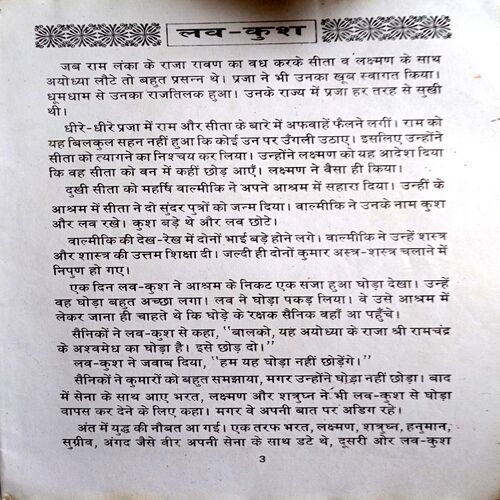 लव-कुश
जब राम लंका के राजा रावण का वध करके सीता व लक्ष्मण के साथ
अयोध्या लौटे तो बहुत प्रसन्न थे। प्रजा ने भी उनका खूब स्वागत किया।
धूमधाम से उनका राजतिलक हुआ। उनके राज्य में प्रजा हर तरह से सुखी
थी।
धीरे-धीरे प्रजा में राम और सीता के बारे में अफवाहें फैलने लगीं। राम को
यह बिलकुल सहन नहीं हुआ कि कोई उन पर उँगली उठाए। इसलिए उन्होंने
सीता को त्यागने का निश्चय कर लिया। उन्होंने लक्ष्मण को यह आदेश दिया
कि वह सीता को वन में कहीं छोड़ आएँ। लक्ष्मण ने वैसा ही किया।
दुखी सीता को महर्षि वाल्मीकि ने अपने आश्रम में सहारा दिया। उन्हीं के
आश्रम में सीता ने दो सुंदर पुत्रों को जन्म दिया। वाल्मीकि ने उनके नाम कुश
और लव रखे। कुश बड़े थे और लव छोटे।
वाल्मीकि की देख-रेख में दोनों भाई बड़े होने लगे। वाल्मीकि ने उन्हें शस्त्र
और शास्त्र की उत्तम शिक्षा दी। जल्दी ही दोनों कुमार अस्त्र-शस्त्र चलाने में
निपुण हो गए।
एक दिन लव-कुश ने आश्रम के निकट एक सजा हुआ घोड़ा देखा। उन्हें
वह घोड़ा बहुत अच्छा लगा। लव ने घोड़ा पकड़ लिया। वे उसे आश्रम में
लेकर जाना ही चाहते थे कि घोड़े के रक्षक सैनिक वहाँ आ पहुँचे।
सैनिकों ने लव-कुश से कहा, "बालको, यह अयोध्या के राजा श्री रामचंद्र
के अश्वमेध का घोड़ा है। इसे छोड़ दो।"
लव-कुश ने जवाब दिया, "हम यह घोड़ा नहीं छोड़ेंगे।"
सैनिकों ने कुमारों को बहुत समझाया, मगर उन्होंने घोड़ा नहीं छोड़ा। बाद
में सेना के साथ आए भरत, लक्ष्मण और शत्रुघ्न ने भी लव-कुश से घोड़ा
वापस कर देने के लिए कहा। मगर वे अपनी बात पर अडिग रहे।
अंत में युद्ध की नौबत आ गई। एक तरफ भरत, लक्ष्मण, शत्रुघ्न, हनुमान,
सुग्रीव, अंगद जैसे वीर अपनी सेना के साथ डटे थे, दूसरी ओर लव-कुश
3